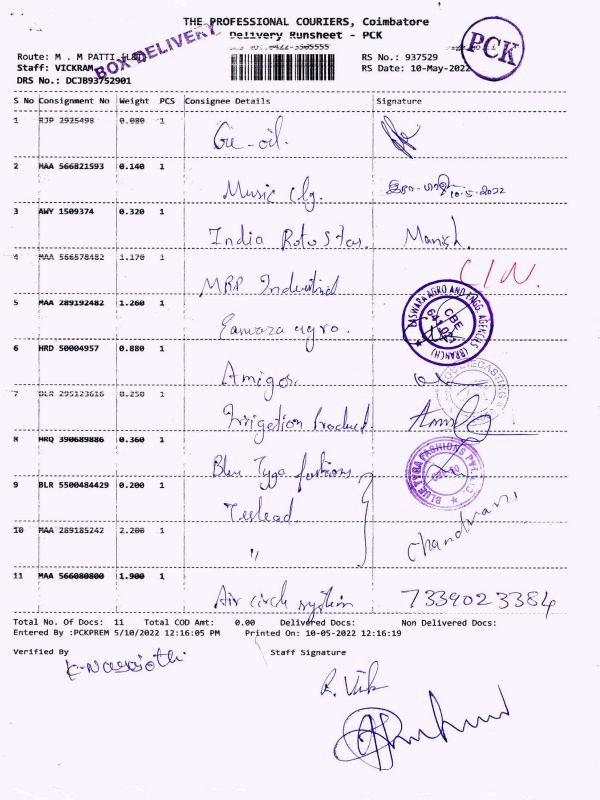 THE PROFESSIONAL COURIERS, Coimbatore
Delivery Runsheet - PCK
BOX DELIVERY
PCK
Route: M . M PATTI
Staff: VICKRAM
DRS No.: DCJB93752901
RS No.: 937529
RS Date: 10-May-2022
S No Consignment No Weight PCS Consignee Details Signature
1 RJP 2925498 0.080 1 Ge-oil.
2 MAA 566821593 0.140 1 Music clg. 10.5.2022
3 AWY 1509374 0.320 1 India Roto Star. Manish.
4 MAA 566578482 1.170 1 MRP Industrial C/N.
5 MAA 289192482 1.260 1 Easwara agro. EASWARA AGRO AND ENGG. AGENCIES (BRANCH) CBE
6 HRD 50004957 0.880 1 Amigos.
7 BLR 295123616 0.250 1 Irrigation Product.
8 HRQ 390689886 0.360 1 Blue Tyga fashions BLUE TYGA FASHIONS PVT. LTD.
9 BLR 5500484429 0.200 1 Teslead.
10 MAA 289185242 2.200 1 " Chandrani
11 MAA 566080800 1.900 1 Air circle system 7339023384
Total No. Of Docs: 11 Total COD Amt: 0.00 Delivered Docs: Non Delivered Docs:
Entered By :PCKPREM 5/10/2022 12:16:05 PM Printed On: 10-05-2022 12:16:19
Verified By Staff Signature